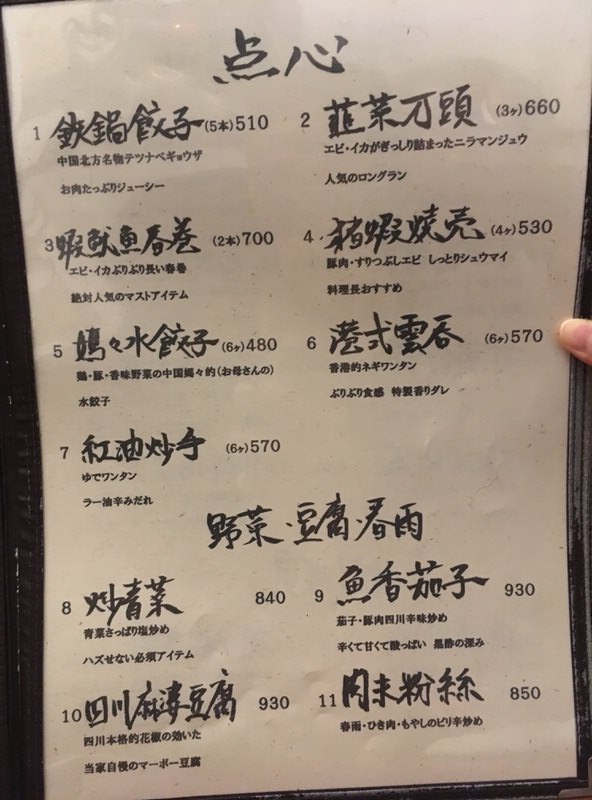 点心
1 鉄鍋餃子 (5本)510
中国北方名物テツナベギョウザ
お肉たっぷりジューシー
2 韮菜刀頭 (3ヶ)660
エビ・イカがぎっしり詰まったニラマンジュウ
人気のロングラン
3 蝦魷魚春巻 (2本)700
エビ・イカぷりぷり長い春巻
絶対人気のマストアイテム
4 猪蝦焼売 (4ヶ)530
豚肉・すりつぶしエビ しっとりシュウマイ
料理長おすすめ
5 媽々水餃子 (6ヶ)480
鶏・豚・香味野菜の中国媽々的(お母さんの)
水餃子
6 港式雲呑 (6ヶ)570
香港的ネギワンタン
ぷりぷり食感 特製香りダレ
7 紅油炒手 (6ヶ)570
ゆでワンタン
ラー油辛みだれ
野菜・豆腐・春雨
8 炒青菜 840
青菜さっぱり塩炒め
ハズせない必須アイテム
9 魚香茄子 930
茄子・豚肉四川辛味炒め
辛くて甘くて酸っぱい 黒酢の深み
10 四川麻婆豆腐 930
四川本格的花椒の効いた
当家自慢のマーボー豆腐
11 肉末粉絲 850
春雨・ひき肉・もやしのピリ辛炒め